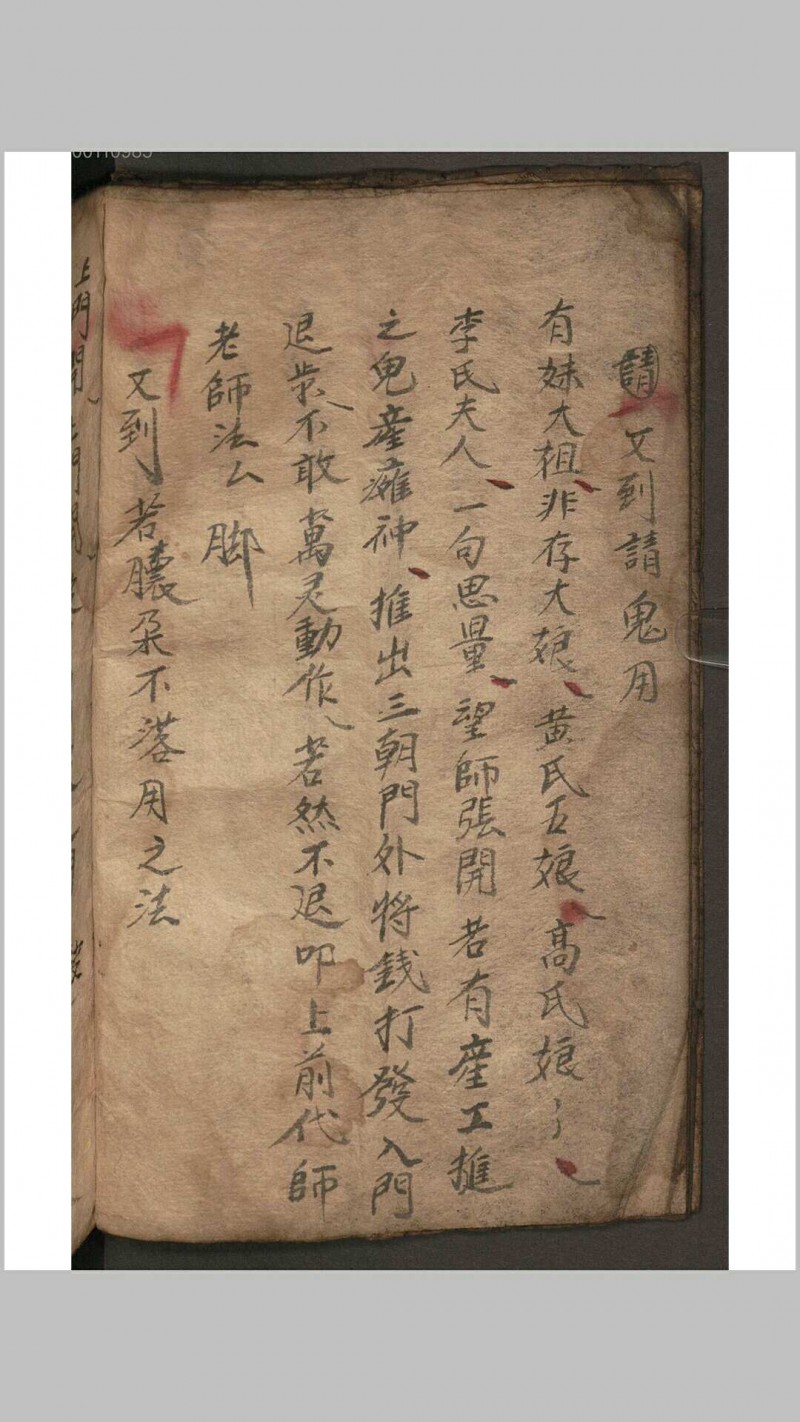 請又到請鬼用
有妹大祖非存大娘黄氏五娘髙氏娘〻
李氏夫人一句思量望師張開若有產工推
之鬼產瘫神推出三朝門外将錢打發入門
退步不敢萬灵動作若然不退叩上前代師
老師法厶 脚
又到若膿朶不落用之法
上門開